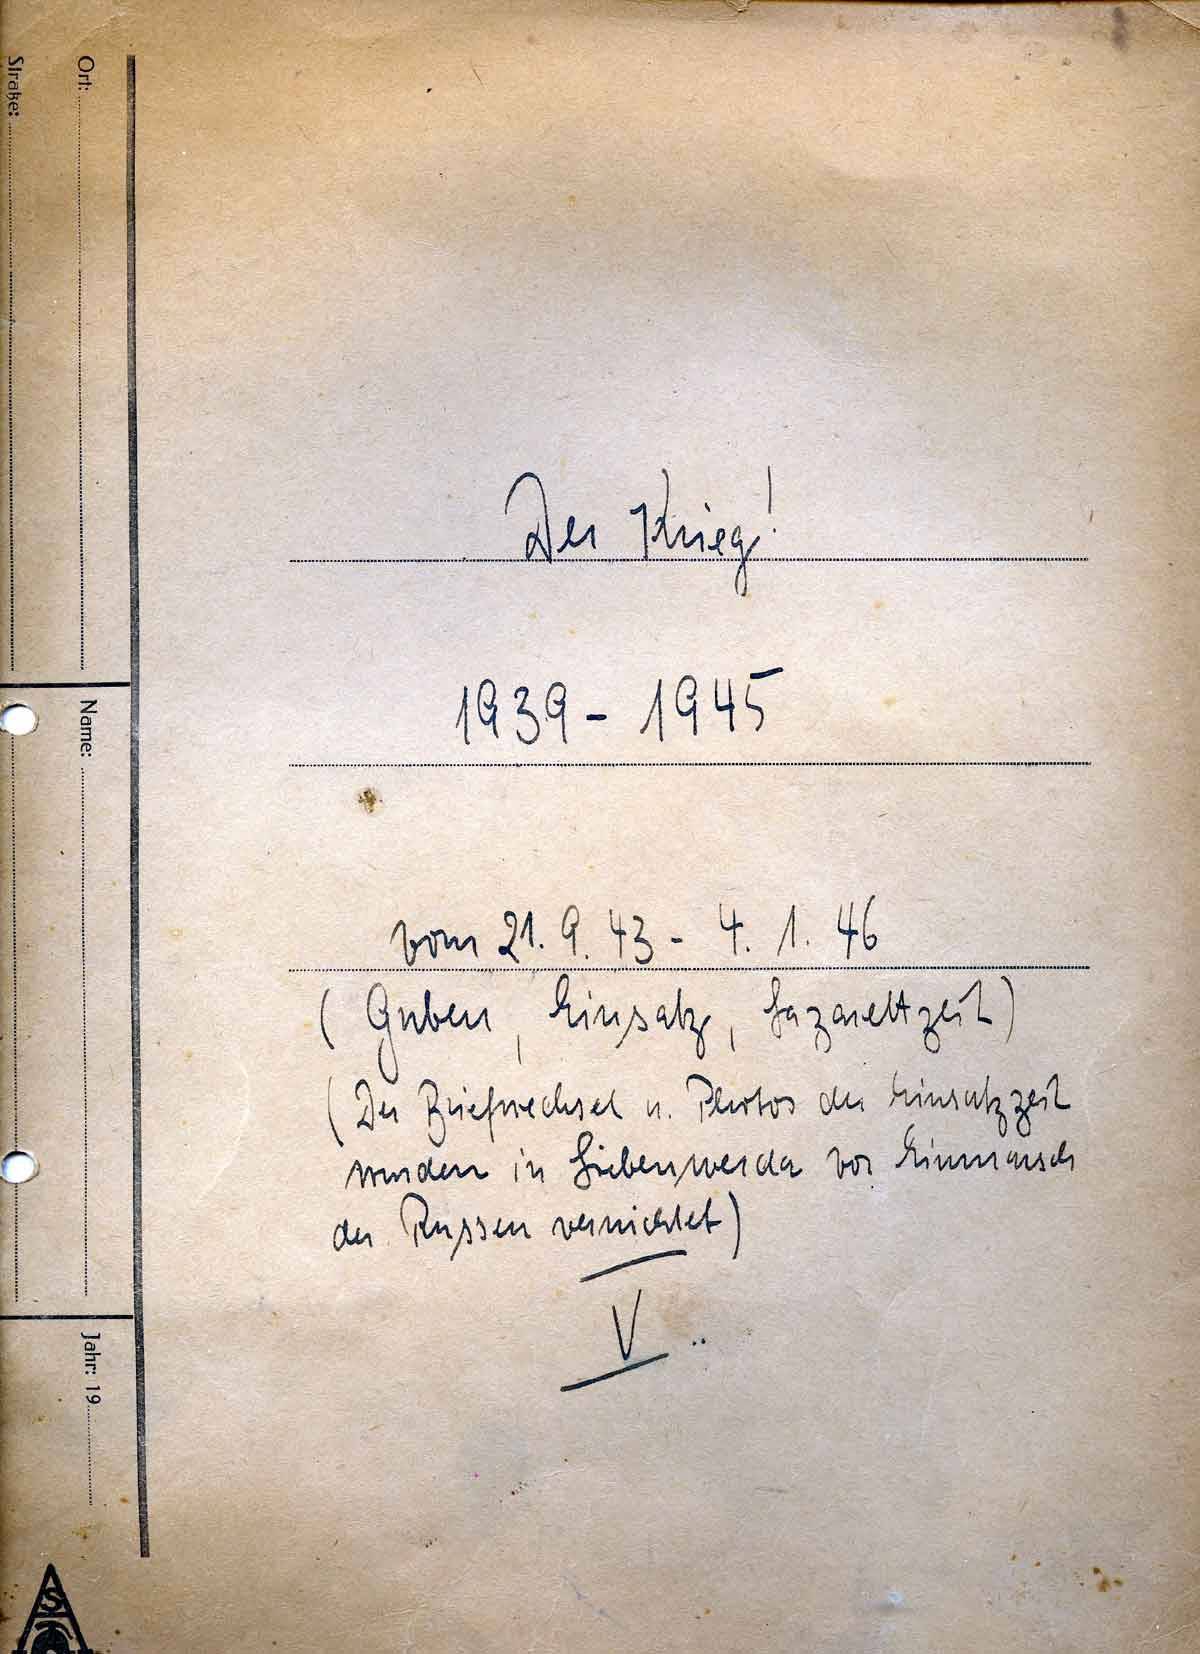 Ort:
Straße:
Name:
Jahr: 19
Der Krieg!
1939 - 1945
vom 21. 9. 43 - 4. 1. 46
(Guben, Einsatz, Lazarettzeit)
(Der Briefwechsel u. Photos der Einsatzzeit
wurden in Liebenwerda vor Einmarsch
der Russen vernichtet)
V